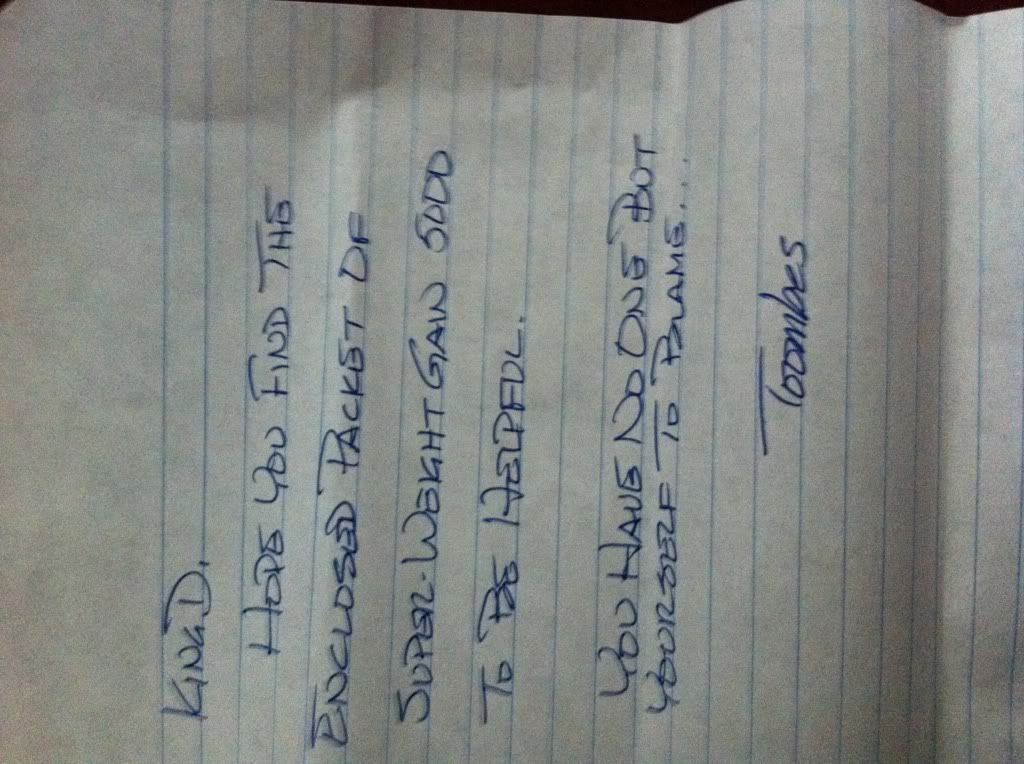 KING D.
HOPE YOU FIND THE
ENCLOSED PACKET OF
SUPER-WEIGHT GAIN 5000
TO BE HELPFUL.
YOU HAVE NO ONE BUT
YOURSELF TO BLAME....
Toombes